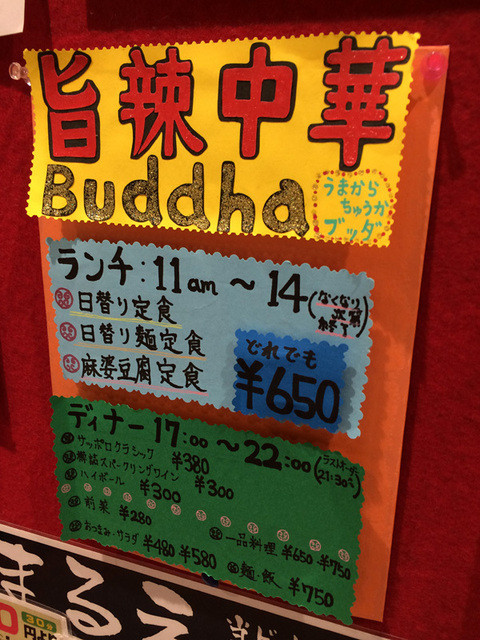 旨辣中華
Buddha
うまから
ちゅうか
ブッダ
ランチ：11am 〜 14(なくなり次第終了)
日替り定食
日替り麺定食
麻婆豆腐定食
どれでも
¥650
ディナー 17:00 〜 22:00(ラストオーダー21:30)
サッポロクラシック ¥380
樽詰スパークリングワイン ¥300
ハイボール ¥300
前菜 ¥280
おつまみ・サラダ ¥480 ¥580
一品料理 ¥650 ¥750
麺・飯 ¥750
まるえ
30分